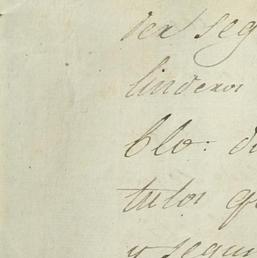 der seg
linderos
blo: d
tulos q
y segui